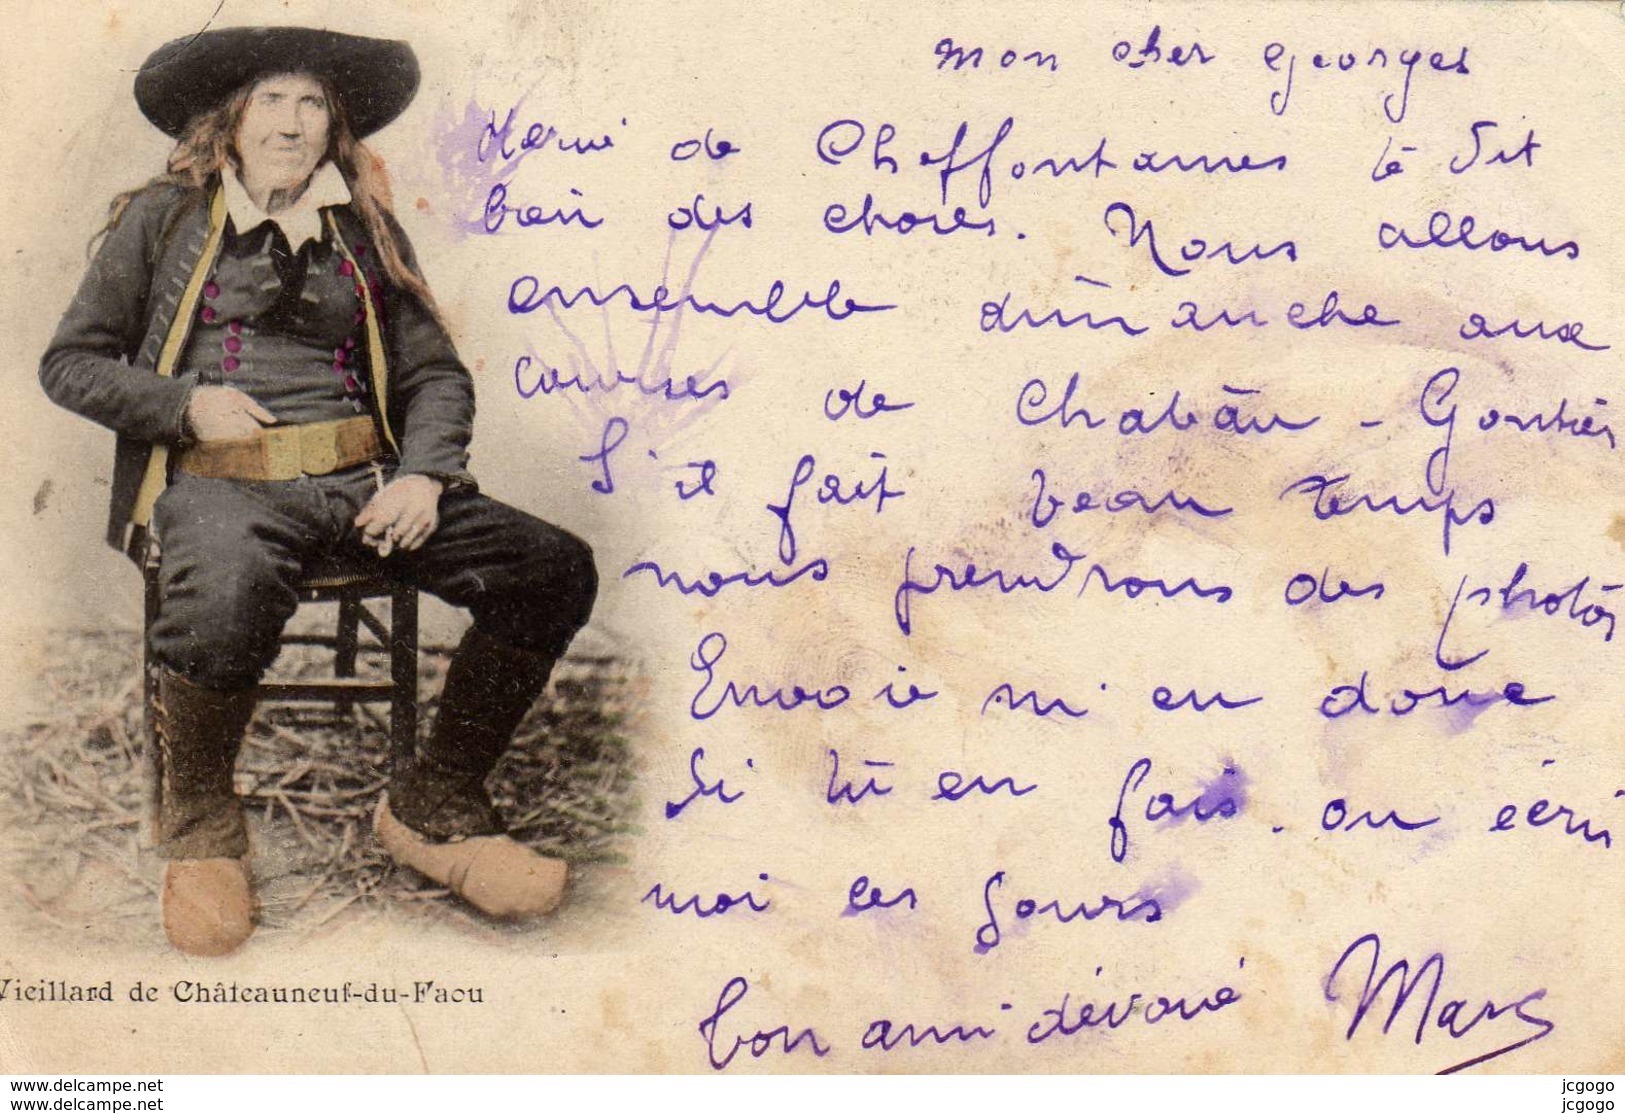 Mon cher Georges
Hervé de Cheffontaines te dit
bien des choses. Nous allons
ensemble dimanche aux
courses de Château-Gontier
S'il fait beau temps
nous prendrons des photos
Envoie m'en donc
Si tu en fais. ou écris
moi ces jours
bon ami dévoué Marc
Vieillard de Châteauneuf-du-Faou
www.delcampe.net jcgogo
www.delcampe.net jcgogo